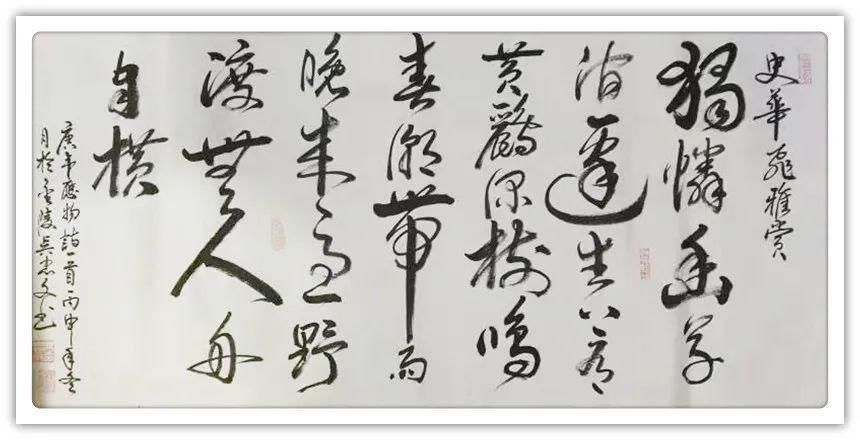 史華飛雅賞
獨憐幽草
澗邊生上有
黄鸝深樹鳴
春潮帶雨
晚来急野
渡無人舟
自横
唐韦應物詩一首丙申年冬
月於金陵吴忠文书